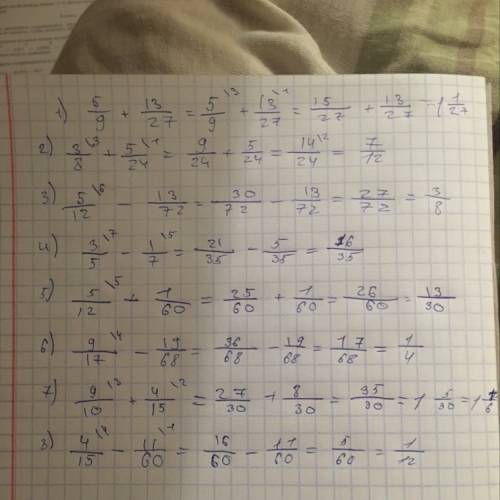 1) 5/9 + 13/27 = 5/9 \3 + 13/27 \1 = 15/27 + 13/27 = 1 1/27
2) 3/8 \3 + 5/24 \1 = 9/24 + 5/24 = 14/24 \2 = 7/12
3) 5/12 \6 - 13/72 = 30/72 - 13/72 = 27/72 = 3/8
4) 3/5 \7 - 1/7 \5 = 21/35 - 5/35 = 16/35
5) 5/12 \5 + 1/60 = 25/60 + 1/60 = 26/60 = 13/30
6) 9/17 \4 - 19/68 = 36/68 - 19/68 = 17/68 = 1/4
7) 9/10 \3 + 4/15 \2 = 27/30 + 8/30 = 35/30 = 1 5/30 = 1 1/6
8) 4/15 \4 - 11/60 \1 = 16/60 - 11/60 = 5/60 = 1/12